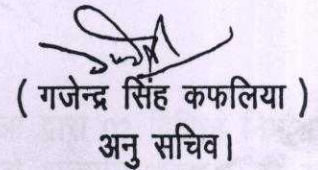 ( गजेन्द्र सिंह कफलिया )
अनु सचिव।